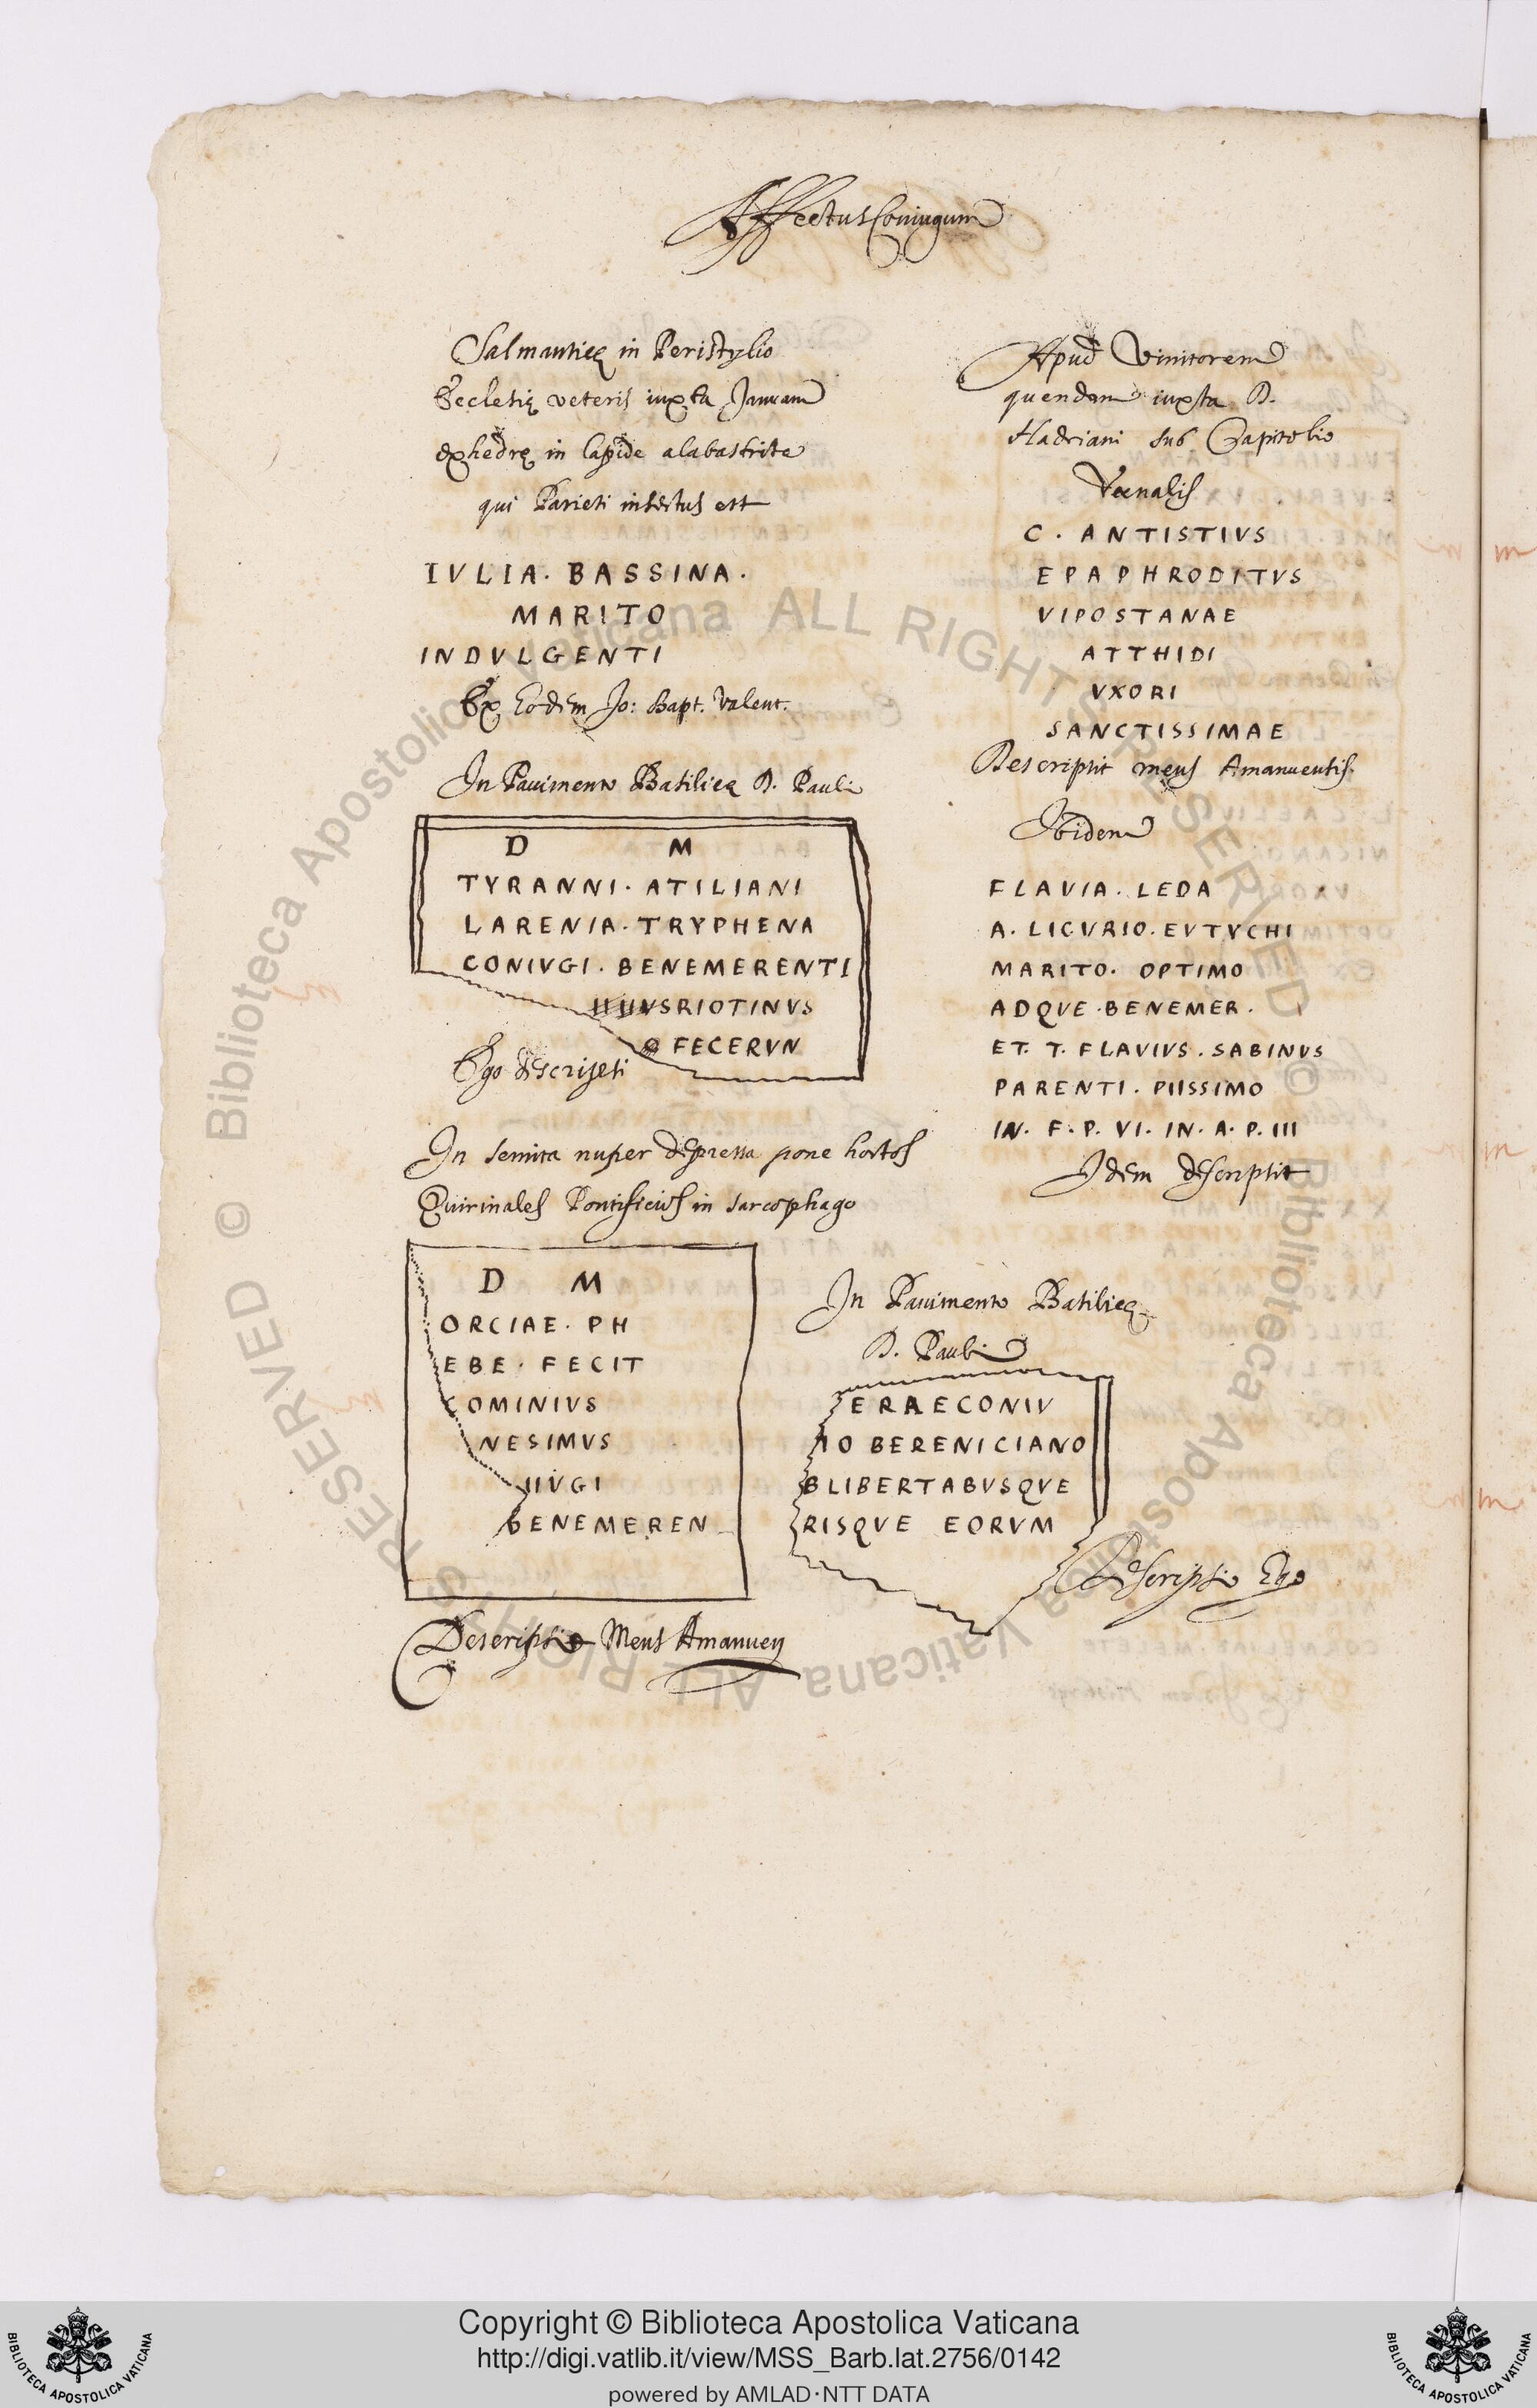 Affectus Coniugum
Salmanticę in Peristylio
Ecclesię veteris iuxta Januam
exhedrę in lapide alabastrite
qui Parieti insertus est
IVLIA. BASSINA.
MARITO
INDVLGENTI
Ex Eodem Jo: Bapt. Valent.
In Pauimento Basilicę D. Pauli
D M
TYRANNI. ATILIANI
LARENIA. TRYPHENA
CONIVGI. BENEMERENTI
VSRIOTINVS
FECERVN
Ego descripsi
In semita nuper depressa pone hortos
Quirinales Pontificios in sarcophago
D M
ORCIAE. PH
EBE. FECIT
COMINIVS
NESIMVS
IIVGI
BENEMEREN
Descripsit Meus Amanuen
Apud Vinitorem
quendam iuxta D.
Hadriani sub Capitolio
Vaenalis
C. ANTISTIVS
EPAPHRODITVS
VIPOSTANAE
ATTHIDI
VXORI
SANCTISSIMAE
Descripsit meus Amanuensis.
Ibidem
FLAVIA. LEDA
A. LICVRIO. EVTYCHI
MARITO. OPTIMO
ADQVE. BENEMER.
ET. T. FLAVIVS. SABINVS
PARENTI. PIISSIMO
IN. F. P. VI. IN. A. P. III
Idem descripsit
In Pauimento Basilicę
D. Pauli
ERAECONIV
IO BERENICIANO
BLIBERTABVSQVE
RISQVE EORVM
Descripsi Ego
Copyright © Biblioteca Apostolica Vaticana
http://digi.vatlib.it/view/MSS_Barb.lat.2756/0142
powered by AMLAD·NTT DATA
BIBLIOTECA APOSTOLICA VATICANA
BIBLIOTECA APOSTOLICA VATICANA
© Biblioteca Apostolica Vaticana ALL RIGHTS RESERVED © Biblioteca Apostolica Vaticana ALL RIGHTS RESERVED